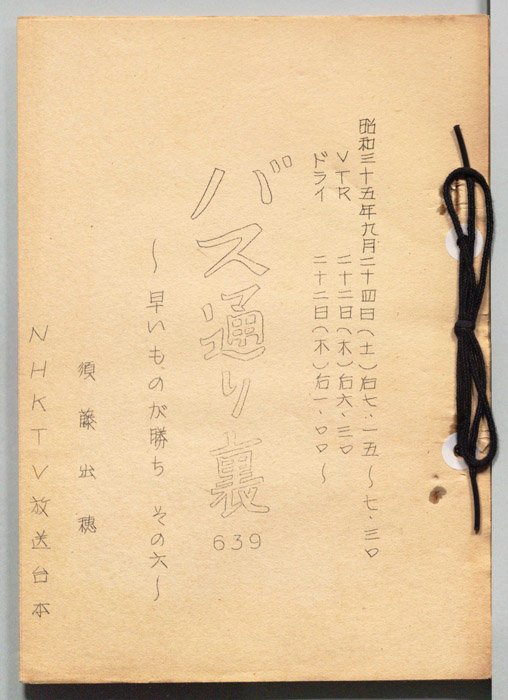 昭和三十五年九月二十四日(土)后七・一五〜七・三〇
VTR 二十二日(木)后六・三〇
ドライ 二十二日(木)后一・〇〇〜
バス通り裏
639
〜早いものが勝ち その六〜
須藤出穂
NHKTV放送台本